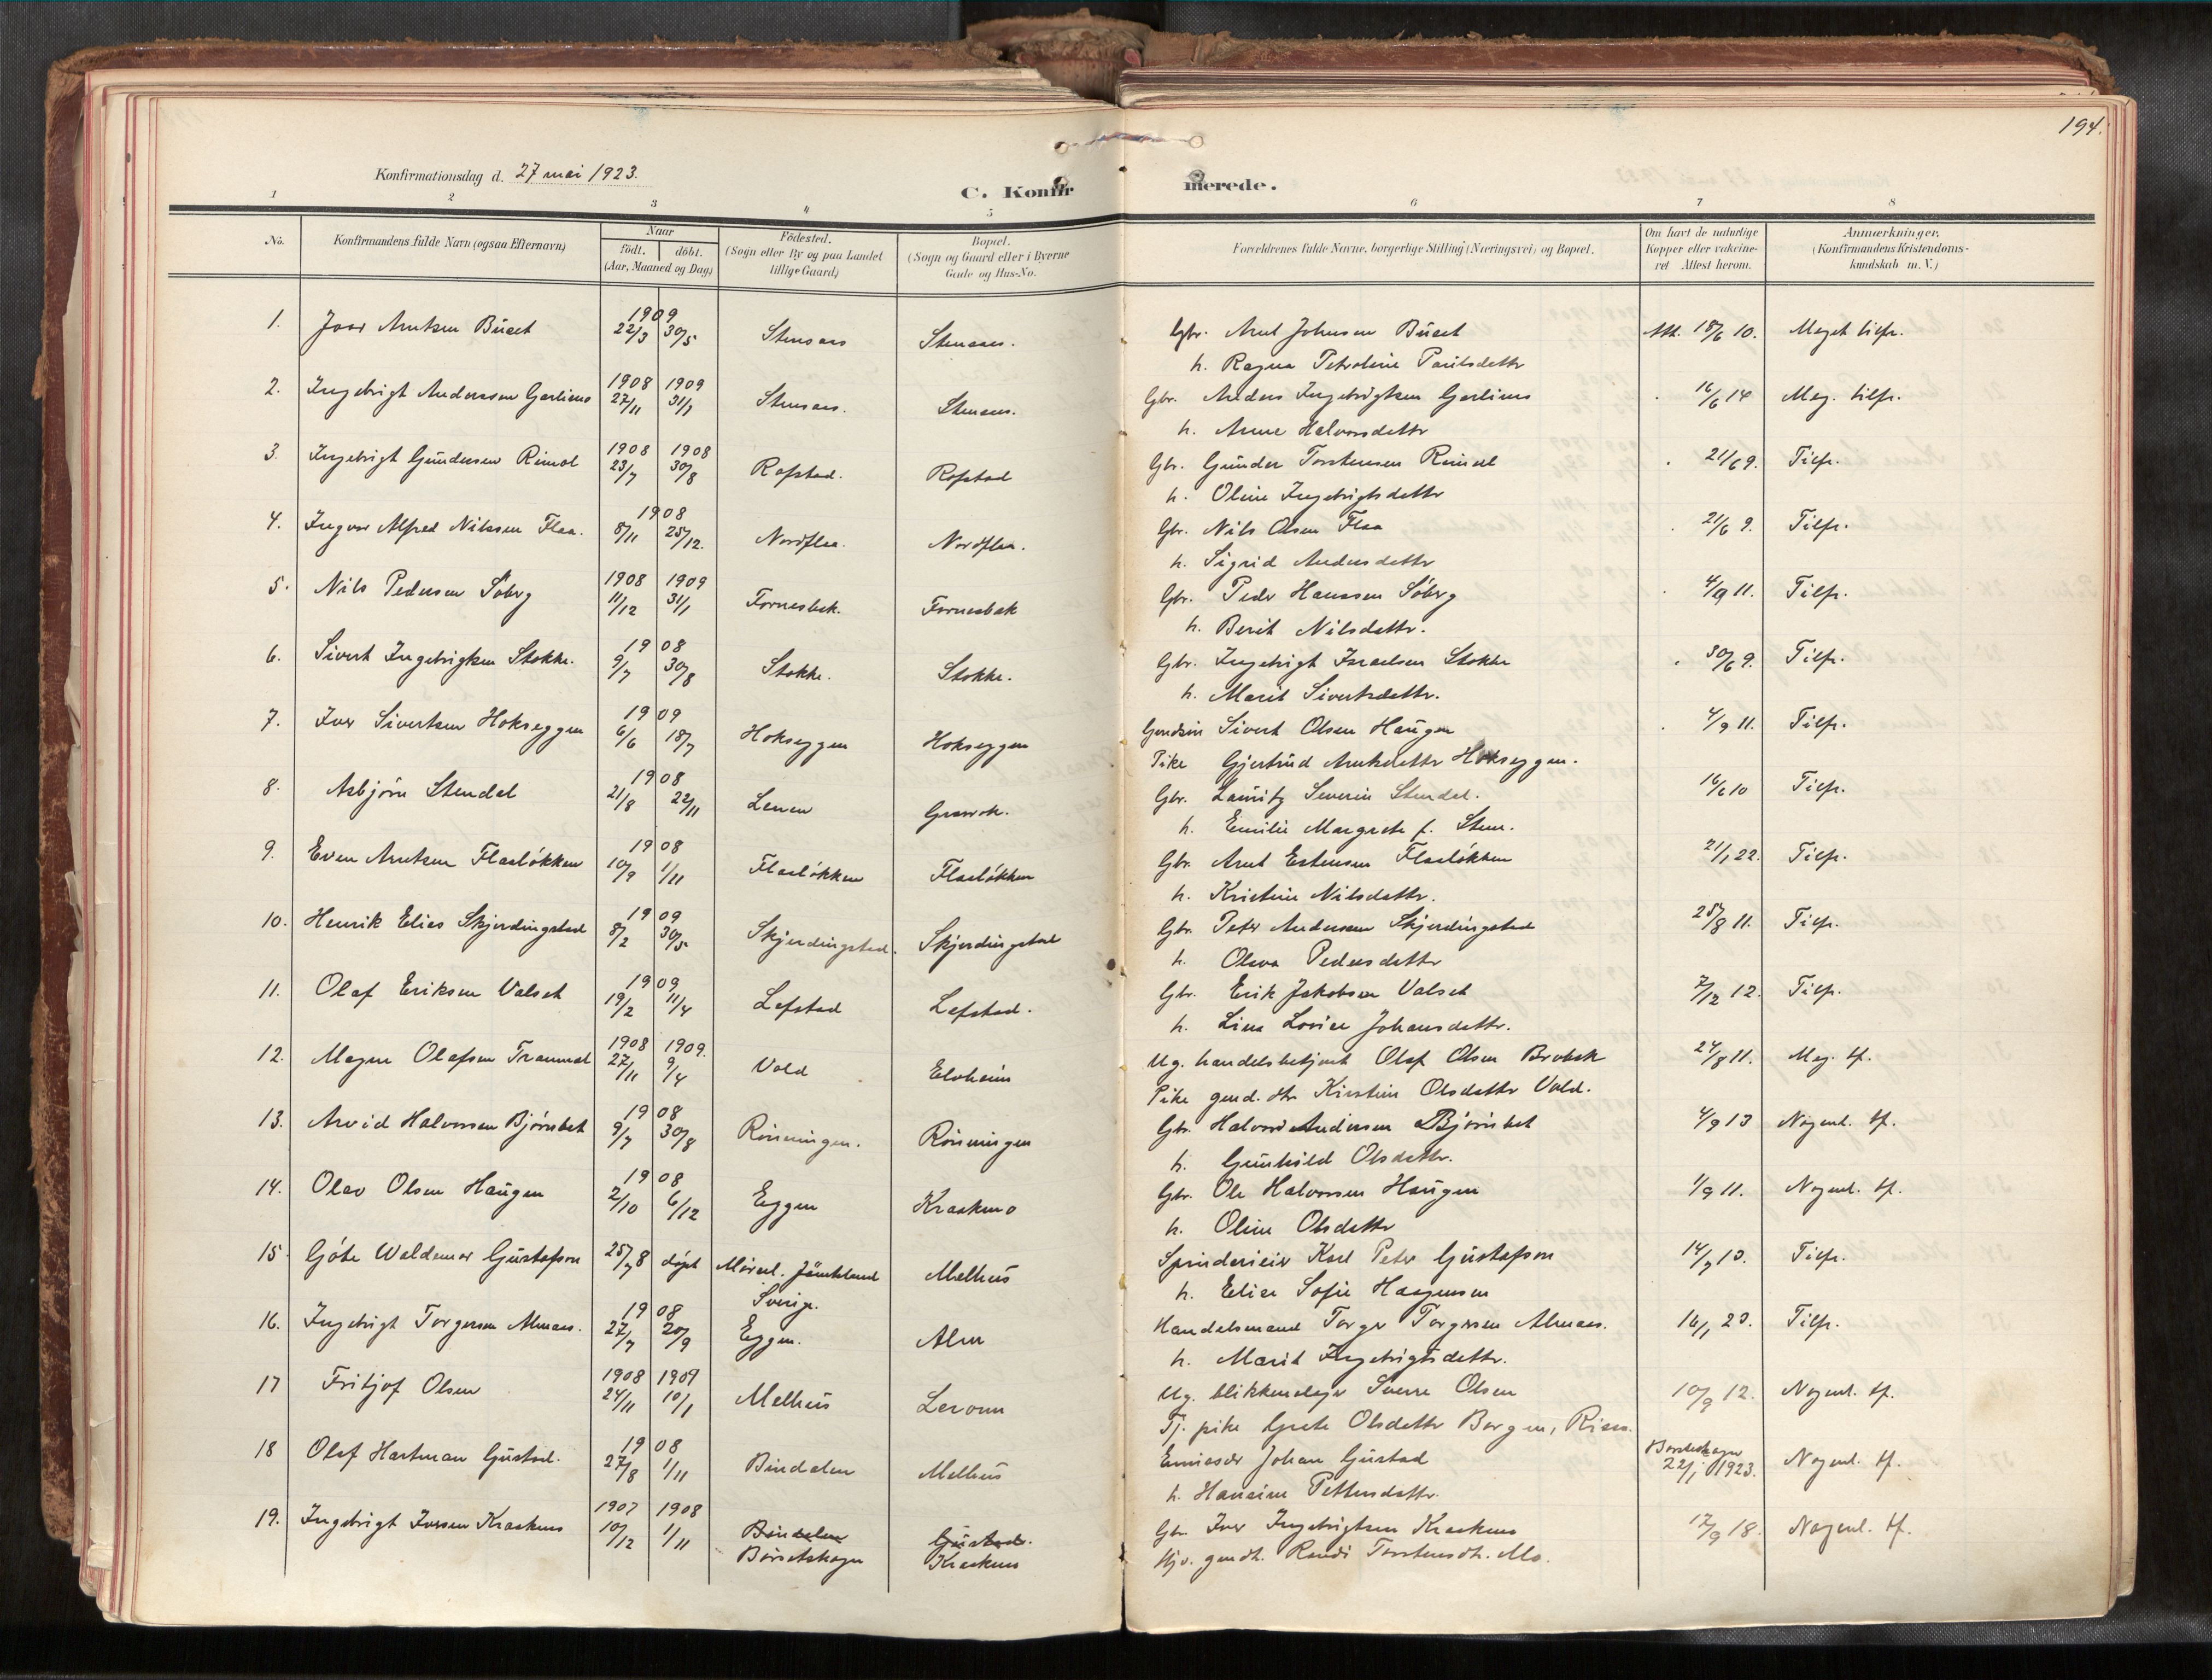 194.
Konfirmationsdag d. 27 mai 1923.
C. Konfirmerede.
1 2 3 4 5 6 7 8
No. Konfirmandens fulde Navn (ogsaa Efternavn) Naar födt. döbt. (Aar, Maaned og Dag) Födested. (Sogn eller By og paa Landet tillige Gaard) Bopæl. (Sogn og Gaard eller i Byerne Gade og Hus-No. Forældrenes fulde Navne, borgerlige Stilling (Næringsvei) og Bopæl. Om havt de naturlige Kopper eller vakcineret Attest herom. Anmærkninger. (Konfirmandens Kristendomskundskab m. V.)
1909
1. Ivar Arntsen Büset 22/3 30/5 Stensaas Stensaas. Gbr. Arnt Johnsen Büset Att. 18/6 10. Meget tilfr.
h. Ragna Petroline Paulsdattr
1908 1909
2. Ingebrigt Anderssen Gaslimo 27/11 31/1 Stensaas. Stensaas. Gbr. Anders Ingebrigtsen Gaslimo 16/6 14 Meg. tilfr.
h. Anne Halvorsdattr
1908 1908
3. Ingebrigt Gundersen Rimol 23/7 30/8 Rofstad. Rofstad Gbr. Gunder Torstensen Rimol 21/6 9. Tilfr.
h. Oline Ingebrigtsdattr
1908
4. Ingvar Alfred Nilssen Flaa. 8/11 25/12. Nordflaa. Nordflaa. Gbr. Nils Olsen Flaa 21/6 9. Tilfr.
h. Sigrid Andersdattr
1908 1909
5. Nils Pedersen Söberg 11/12 31/1 Fornesbak. Fornesbak Gbr. Peder Hanssen Söberg 4/9 11. Tilfr.
h. Berit Nilsdattr.
1908
6. Sivert Ingebrigtsen Stokke. 9/7 30/8 Stokke. Stokke. Gbr. Ingebrigt Israelsen Stokke 30/6 9. Tilfr.
h. Marit Sivertsdattr.
1909
7. Iver Sivertsen Hokseggen 6/6 18/7 Hokseggen Hokseggen Gaardsön Sivert Olsen Haugen 4/9 11. Tilfr.
Pike Gjertrud Arntsdattr Hokseggen.
1908
8. Asbjörn Stendal 21/8 22/11 Lenen Gbr. Lauritz Severin Stendal. 16/6 10 Tilfr.
h. Emilie Margrete f. Sten.
1908
9. Even Arntsen Flaalökken 10/9 1/11 Flaalökken Flaalökken Gbr. Arnt Estensen Flaalökken 21/1 22. Tilfr.
h. Kristine Nilsdattr.
1909
10. Henrik Elias Skjerdingstad 8/2 30/5 Skjerdingstad. Skjerdingstad Gbr. Peter Andersen Skjerdingstad 25/8 11. Tilfr.
h. Olava Pedersdattr
1909
11. Olaf Eriksen Valset 19/2 11/4 Lefstad Lefstad. Gbr. Erik Jakobsen Valset 7/12 12. Tilfr.
h. Lina Lovise Johansdattr.
1908 1909.
12. Magne Olafsen Tranmæl 27/11 9/4 Vold Elvheim Ug. handelsbetjent Olaf Olsen Brubak 24/8 11. Meg. tf.
Pike gaard. dtr Kirstine Olsdattr Vold.
1908
13. Arvid Halvorsen Björnbet 9/7 30/8 Rönningen. Rönningen Gbr. Halvor Andersen Björnbet 4/9 13 Nogenl. tf.
h. Gunhild Olsdattr.
1908
14. Olav Olsen Haugen 2/10 6/12 Eggen Kraakmo Gbr. Ole Halvorsen Haugen 1/9 11. Nogenl. tf.
h. Oline Olsdattr
15. Göte Waldemar Gustafson 25/7 8 döpt Mörsil. Jämtland Melhus Karl Peter Gustafson Tilfr.
Sverige. h. Elise Sofie
1908
16. Ingebrigt Torgersen Almaas. 27/7 20/9 Eggen. Aler Handelsmand Torger Torgersen Almaas. 16/1 23. Tilfr.
h. Marit Ingebrigtsdattr.
1908 1909
17 Fritjof Olsen 24/11 10/1 Melhus Ug. blikkenslager Sverre Olsen 10/9 12. Nogenl. tf.
Tj. pike Grete Olsdattr Borgen, Rissa.
1908
18 Olaf Hartman Gustad. 27/8 1/11 Bindalen Melhus Emissær Johan Gustad Börsteskogn 22/1 1923. Nogenl. tf.
h. Hansine Pettersdattr.
1907 1908
19. Ingebrigt Iversen Kraakmo 10/12 1/11 Bindalen Gustad. Gbr. Iver Ingebrigtsen Kraakmo 17/9 18. Nogenl. tf.
Börseskogn Kraakmo gaardt. Randi Torstensdt. Mo.